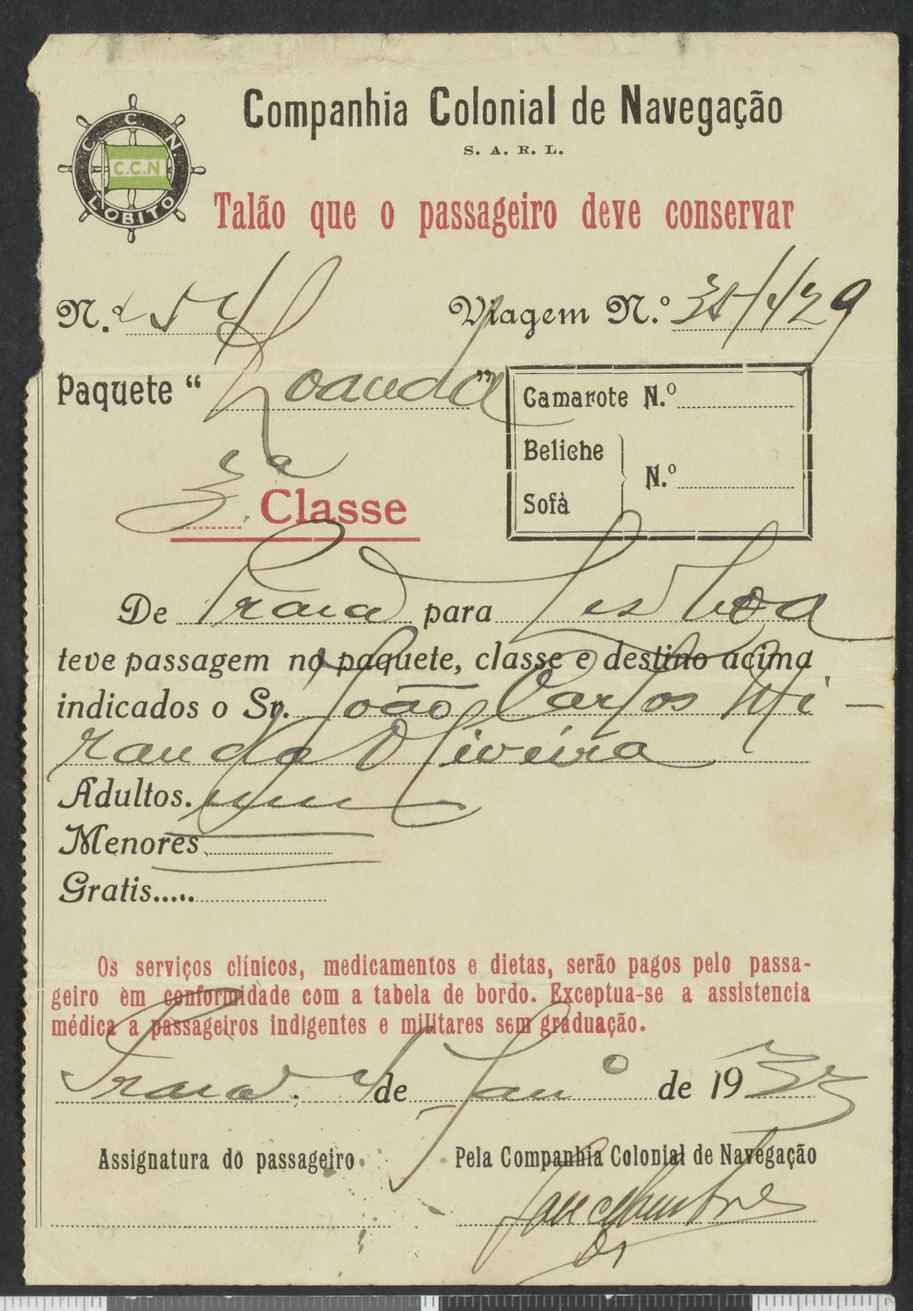 C C N
C.C.N
LOBITO
Companhia Colonial de Navegação
S. A. R. L.
Talão que o passageiro deve conservar
N. Viagem N.º
Paquete “Loanda”
Camarote N.º
Beliche
Sofà
N.º
3ª Classe
De Praia para Lisboa
teve passagem no paquete, classe e destino acima
indicados o Sr. João Carlos Mi-
randa Oliveira
Adultos. um
Menores
Gratis.....
Os serviços clínicos, medicamentos e dietas, serão pagos pelo passa-
geiro em conformidade com a tabela de bordo. Exceptua-se a assistencia
médica a passageiros indigentes e militares sem graduação.
Praia. de Janº de 19
Assignatura do passageiro
Pela Companhia Colonial de Navegação